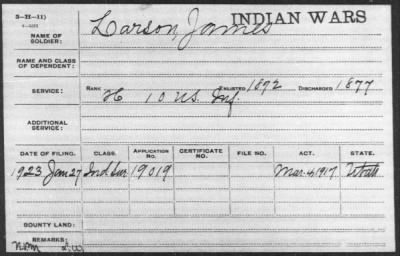 3-H-11)
INDIAN WARS
NAME OF SOLDIER: Larson, James
NAME AND CLASS OF DEPENDENT:
SERVICE: RANK ENLISTED 1872 DISCHARGED 1877
H 10 U.S. Inf.
ADDITIONAL SERVICE:
DATE OF FILING. CLASS. APPLICATION NO. CERTIFICATE NO. FILE NO. ACT. STATE.
1923 Jan 27 Ind Sur 19019 Mar. 4, 1917 Utah
BOUNTY LAND:
REMARKS: